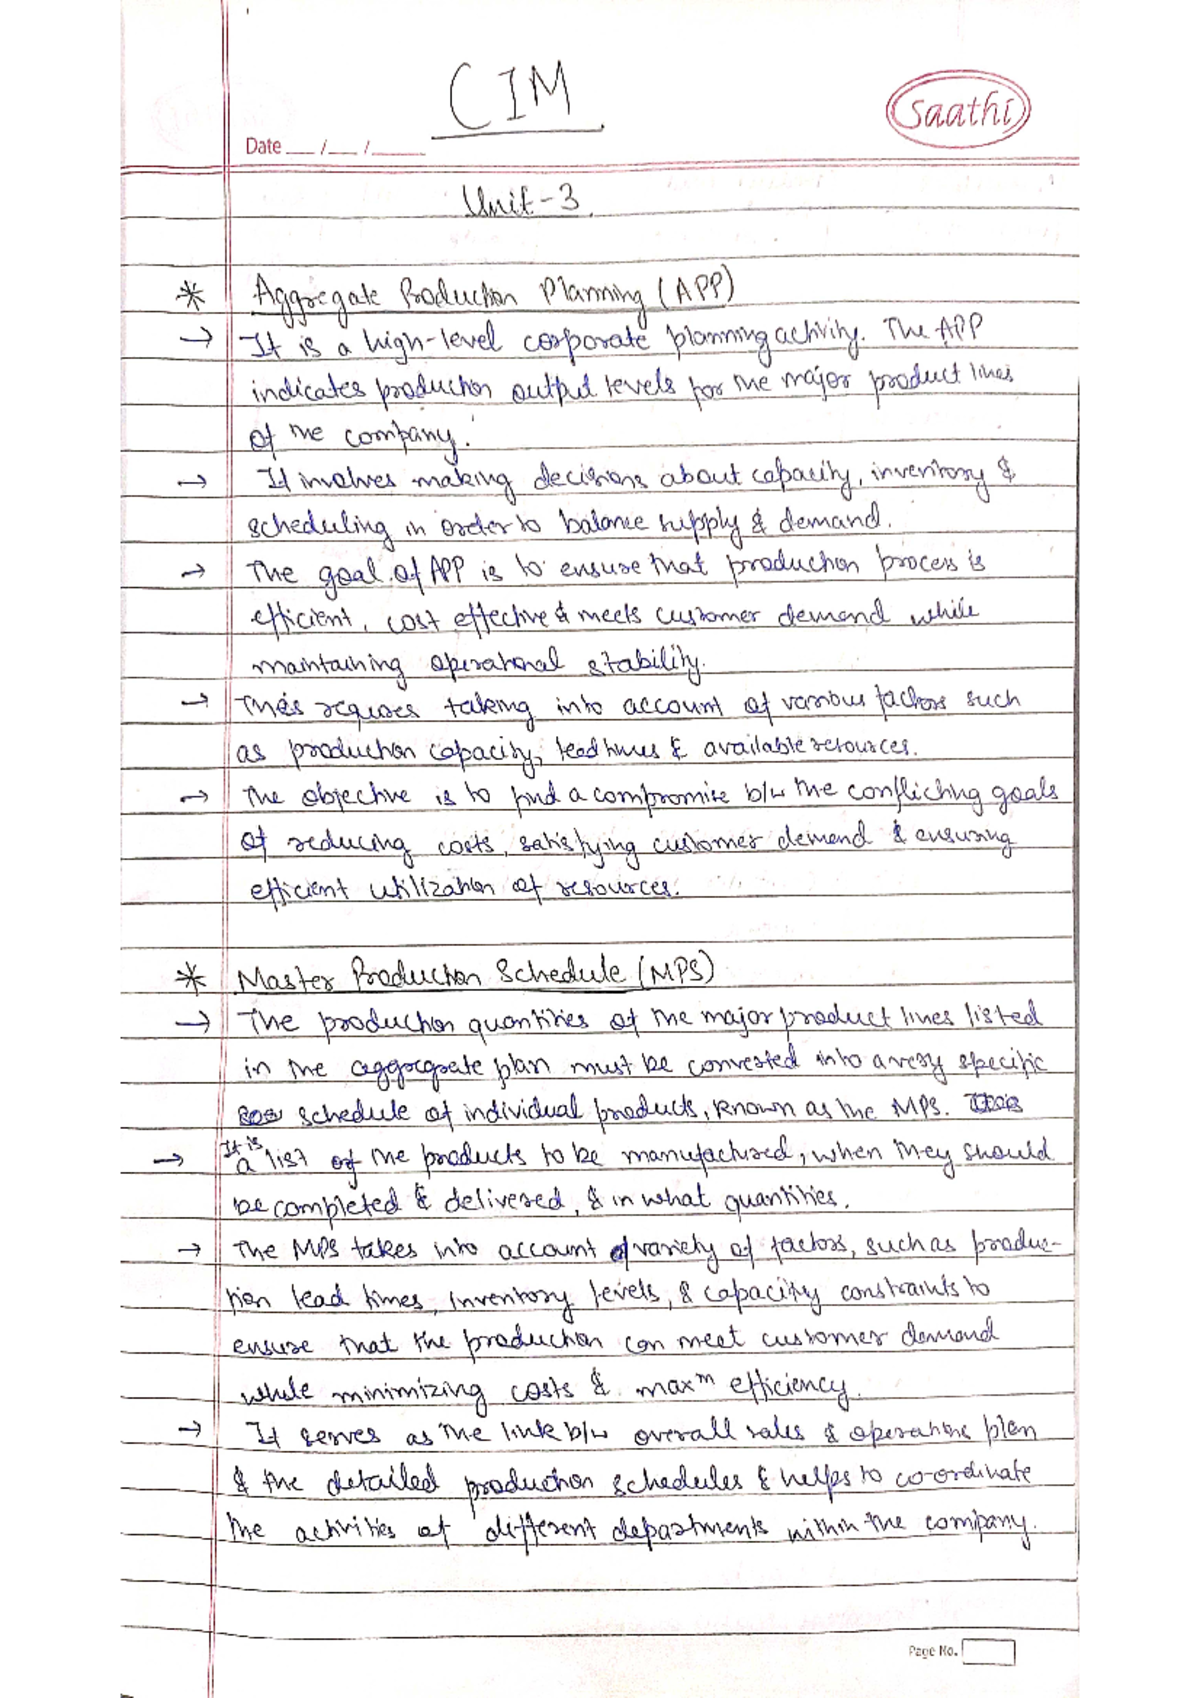 CIM
Saathi
Date __/__/____
Unit-3
* Aggregate Production Planning (APP)
→ It is a high-level corporate planning activity. The APP
indicates production output levels for the major product lines
of the company.
→ It involves making decisions about capacity, inventory &
scheduling in order to balance supply & demand.
→ The goal of APP is to ensure that production process is
efficient, cost effective & meets customer demand while
maintaining operational stability.
→ This requires taking into account of various factors such
as production capacity, lead times & available resources.
→ The objective is to find a compromise b/w the conflicting goals
of reducing costs, satisfying customer demand & ensuring
efficient utilization of resources.
* Master Production Schedule (MPS)
→ The production quantities of the major product lines listed
in the aggregate plan must be converted into a very specific
schedule of individual products, known as the MPS.
→ It is a list of the products to be manufactured, when they should
be completed & delivered, & in what quantities.
→ The MPS takes into account of variety of factors, such as produc-
tion lead times, inventory levels, & capacity constraints to
ensure that the production can meet customer demand
while minimizing costs & maxᵐ efficiency.
→ It serves as the link b/w overall sales & operations plan
& the detailed production schedules & helps to co-ordinate
the activities of different departments within the company.
Page No.